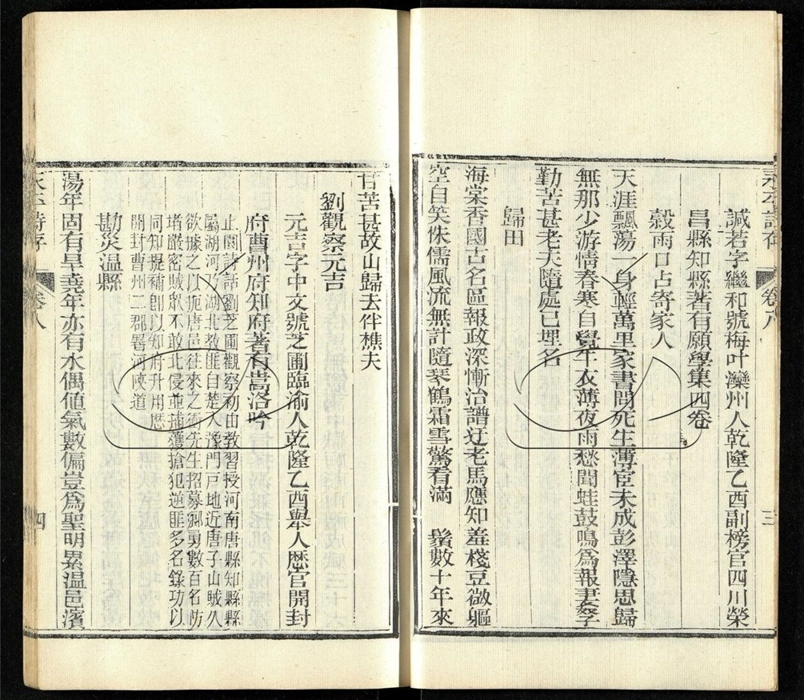 永平詩存 卷八 三
誠若字繼和號梅叶灤州人乾隆乙酉副榜官四川榮
昌縣知縣著有願學集四卷
穀雨口占寄家人
天涯飄蕩一身輕萬里家書問死生薄宦未成彭澤隱思歸
無那少游情春寒自覺年衣薄夜雨愁聞蛙鼓鳴為報妻孥
勤苦甚老天隨處已埋名
歸田
海棠香國古名區報政深慚治譜迂老馬應知羞棧豆微軀
空自笑侏儒風流無計隨琴鶴霜雪驚看滿鬚數十年來
甘苦甚故山歸去伴樵夫
劉觀察元吉
元吉字中文號芝圃臨渝人乾隆乙酉舉人歷官開封
府曹州府知府著有嵩洛吟
止園詩話劉芝圃觀察初由教習授河南唐縣知縣縣
屬湖河乃湖北教匪自楚入豫門戶地近唐子山賊久
欲據之以扼唐邑往來之衝先生招募鄉勇數百名防
堵嚴密賊眾不敢北侵並捕獲搶犯逆匪多名錄功以
同知提補創以知府升用歷
開封曹州二郡署河陝道
勘災溫縣
湯年固有旱堯年亦有水偶值氣數偏豈為聖明累溫邑濱
永平詩存 卷八 四